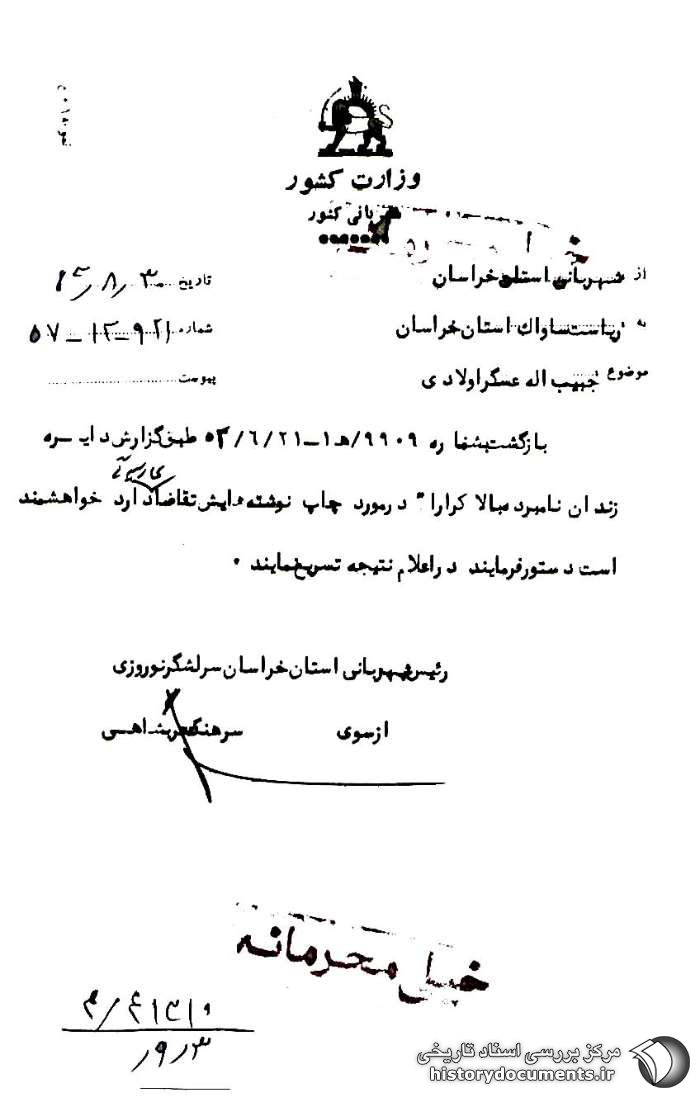 وزارت کشور
شهربانی کشور
از شهربانی استان خراسان
تاریخ
به ریاست ساواک استان خراسان
شماره ۹۲۱-۱۲-۵۷
موضوع حبیب اله عسگراولادی
پیوست
بازگشت بشماره ۹۹۰۹/ه۱-۵۳/۶/۲۱ طبق گزارش دایره
زندان نامبرده بالا کرارا" در مورد چاپ نوشته هایش تقاضا دارد خواهشمند
است دستور فرمایند در اعلام نتیجه تسریع نمایند ۰
رئیس شهربانی استان خراسان سرلشگر نوروزی
از سوی سرهنگ
خیلی محرمانه
مرکز بررسی اسناد تاریخی
historydocuments.ir